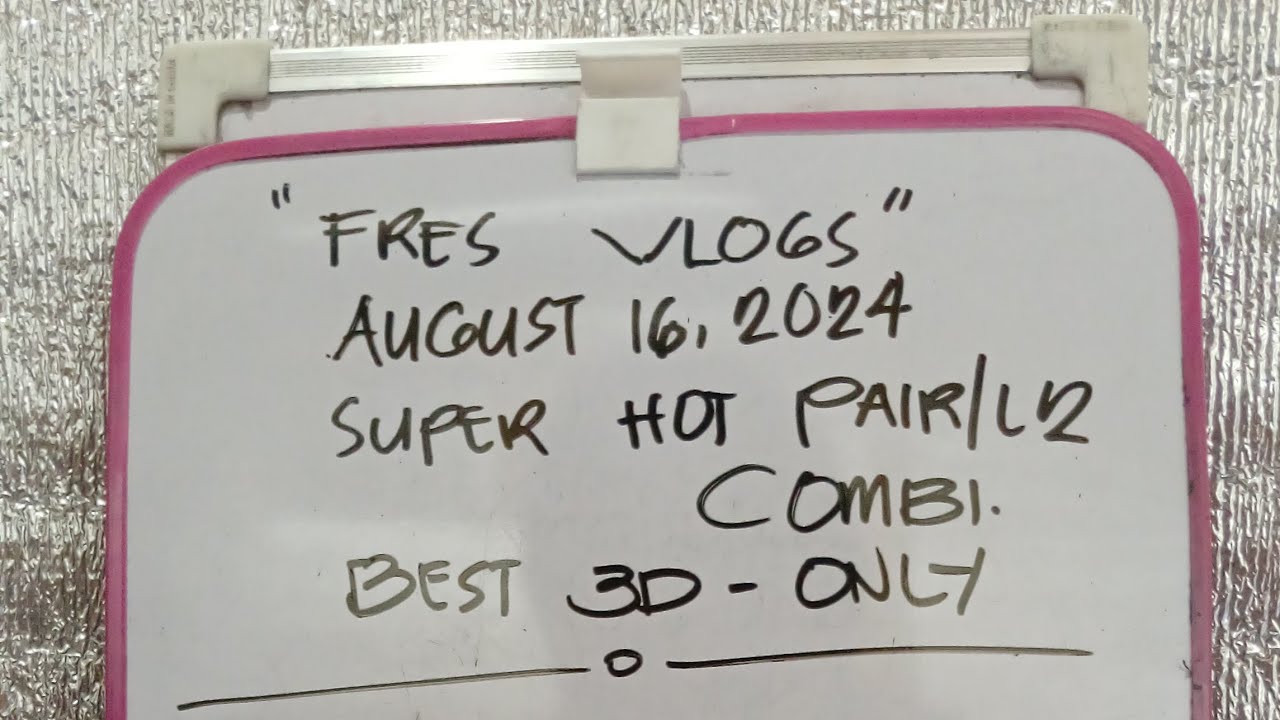 " FRES VLOGS "
AUGUST 16, 2024
SUPER HOT PAIR/L2
COMBI.
BEST 3D - ONLY